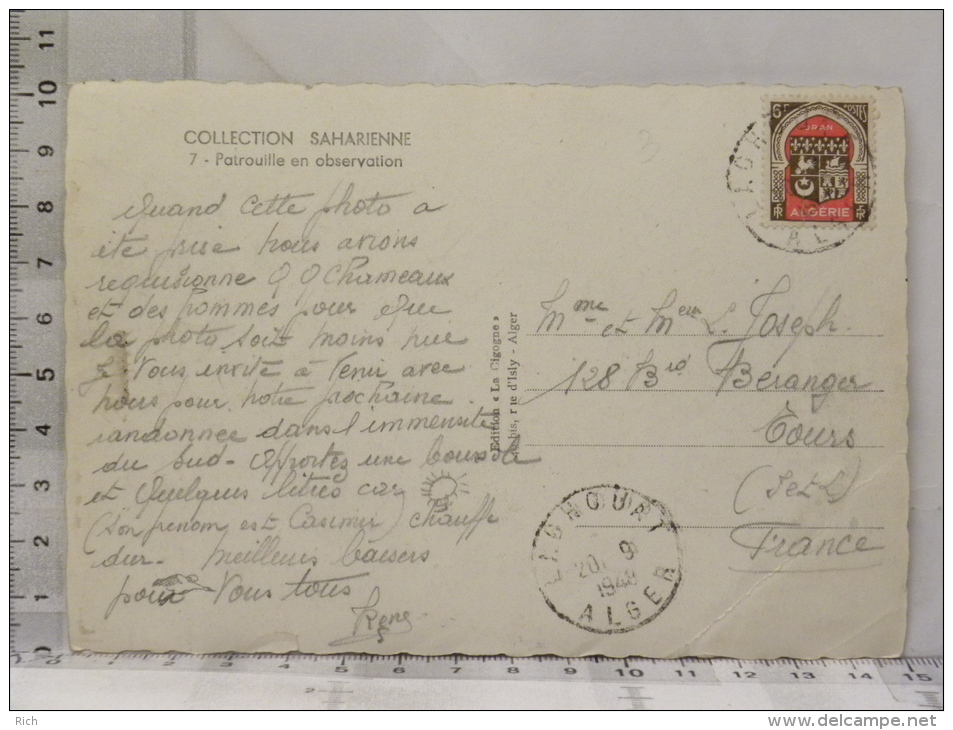 COLLECTION SAHARIENNE
7 - Patrouille en observation
Quand cette photo a
été prise nous avions
requisionne Chameaux
et des hommes pour que
la photo soit moins nue
Je Vous invite à Venir avec
nous pour notre prochaine
randonnee dans l'immensite
du Sud - Apportez une boussole
et Quelques litres car
(son prenom est Casimir) chauffe
dur. Meilleurs baisers
pour Vous tous
René
Edition « La Cigogne »
bis, rue d'Isly - Alger
6F POSTES
ORAN
RF ALGÉRIE RF
LAGH
AL
Mme et Mer L. Joseph.
128 Brd Béranger
Tours
(I et L)
France
LAGHOUAT
20 - 9
1948
ALGER
Rich
www.delcampe.net